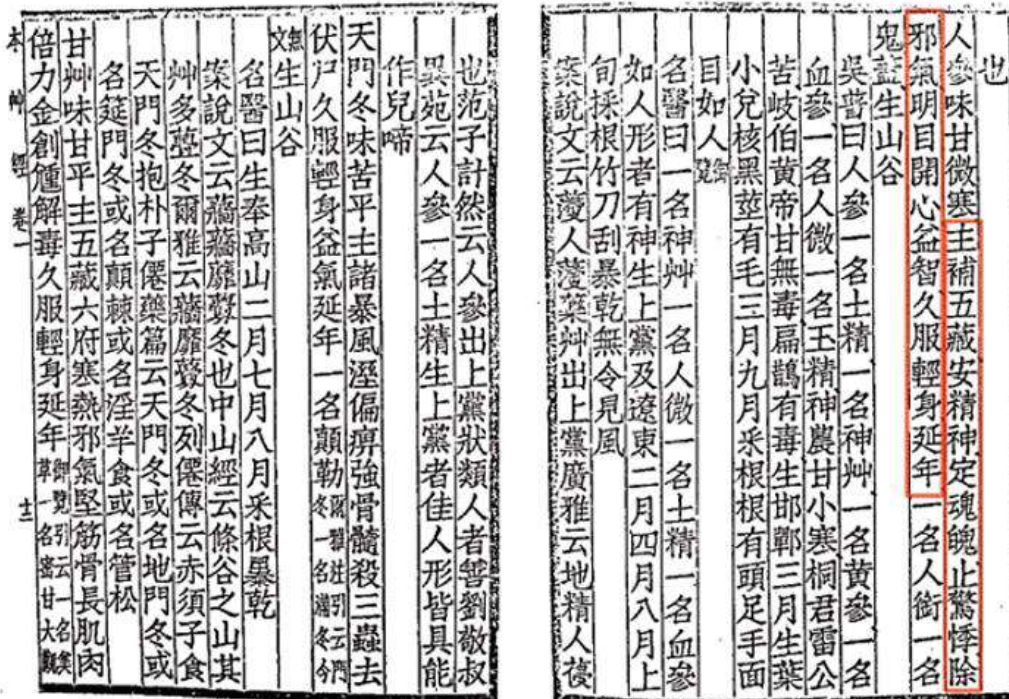 也
人參味甘微寒主補五藏安精神定魂魄止驚悸除
邪氣明目開心益智久服輕身延年一名人銜一名
鬼蓋生山谷
吳普曰人參一名土精一名神艸一名黃參一名
血參一名人微一名玉精神農甘小寒桐君雷公
苦岐伯黃帝甘無毒扁鵲有毒生邯鄲三月生葉
小兌核黑莖有毛三月九月采根根有頭足手面
目如人御覽
名醫曰一名神艸一名人微一名土精一名血參
如人形者有神生上黨及遼東二月四月八月上
旬採根竹刀刮暴乾無令見風
案說文云薓人薓藥艸出上黨廣雅云地精人薓
也范子計然云人參出上黨狀類人者善劉敬叔
異苑云人參一名土精生上黨者佳人形皆具能
作兒啼
天門冬味苦平主諸暴風溼偏痹強骨髓殺三蟲去
伏尸久服輕身益氣延年一名顛勒爾雅注引云門冬一名滿冬今
無文生山谷
名醫曰生奉高山二月七月八月采根暴乾
案說文云蘠蘠蘼虋冬也中山經云條谷之山其
艸多虋冬爾雅云蘠蘼虋冬列僊傳云赤須子食
天門冬抱朴子僊藥篇云天門冬或名地門冬或
名筵門冬或名顛棘或名淫羊食或名管松
甘艸味甘平主五藏六府寒熱邪氣堅筋骨長肌肉
倍力金創尰解毒久服輕身延年御覽引云一名美草一名密甘大觀
本 神 經 卷一 十三